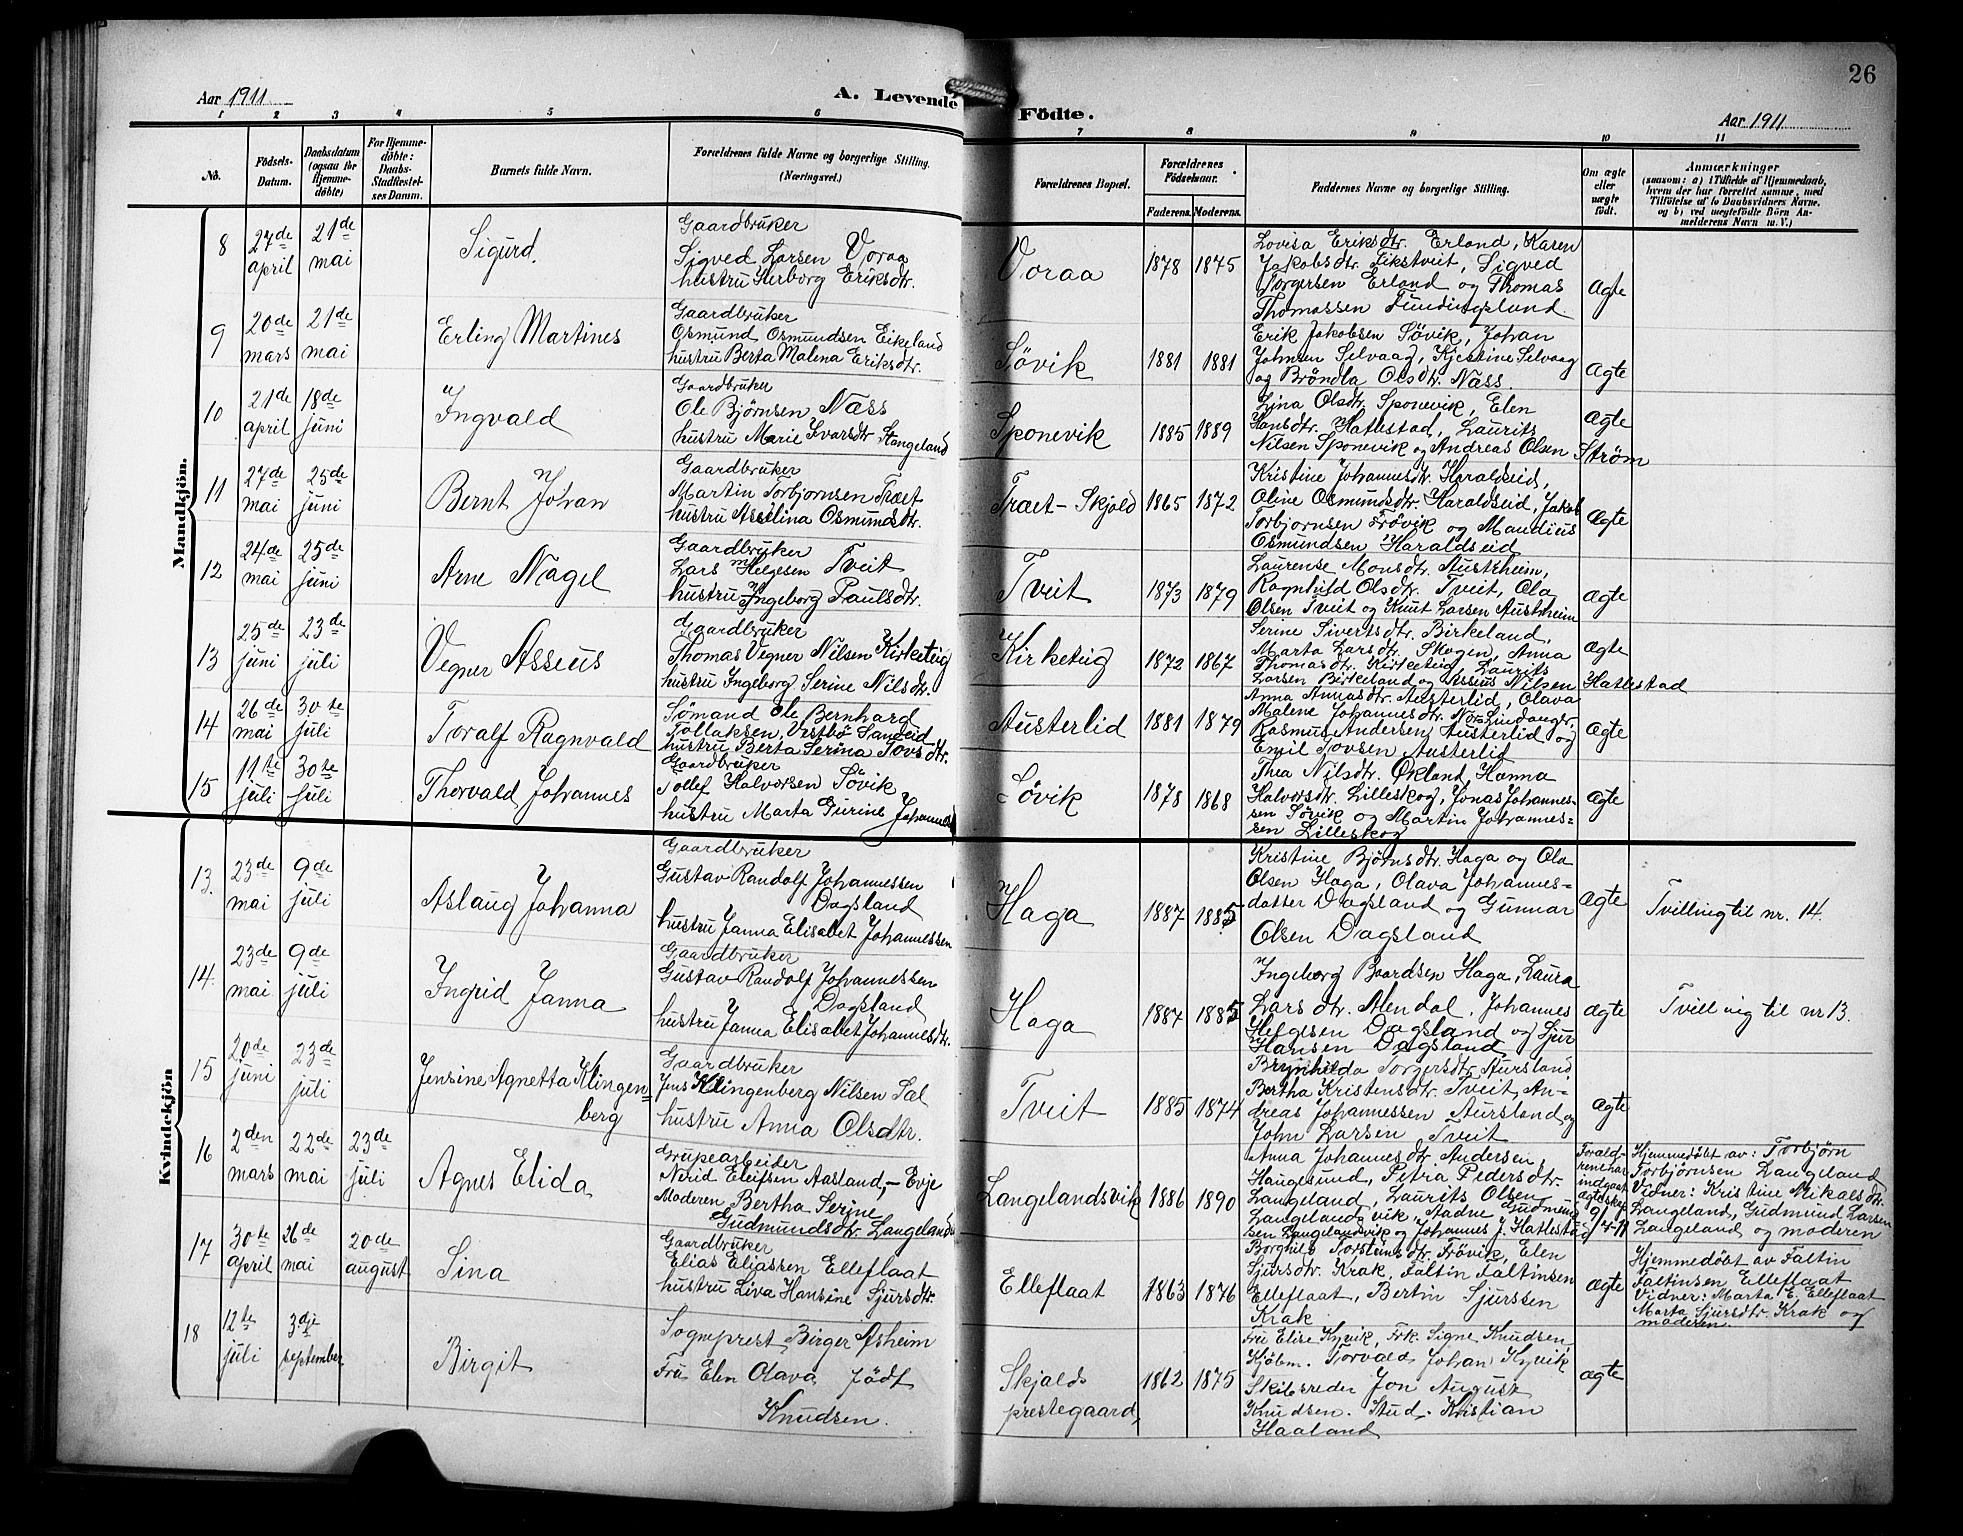 26
Aar 1911
A. Levende Födte.
Aar 1911
1 2 3 4 5 6 7 8 9 10 11
No.
Födsels-
Datum.
Daabsdatum
(ogsaa for
Hjemme-
döbte)
For Hjemme-
döbte:
Daabs-
Stadfæstel-
ses Datum.
Barnets fulde Navn.
Forældrenes fulde Navne og borgerlige Stilling.
(Næringsvei.)
Forældrenes Bopæl.
Forældrenes
Födselsaar.
Faderens. Moderens.
Faddernes Navne og borgerlige Stilling.
Om ægte
eller
uægte
födt.
Anmærkninger
(saasom: a) i Tilfælde af Hjemmedaab,
hvem der har forrettet samme, med
Tilföielse af to Daabsvidners Navne.
og b) ved uægtefödte Börn An-
melderens Navn m. V.)
Mandkjön.
8
27de april
21de mai
Sigurd.
Gaardbruker
Sigved Larsen Voraa
hustru Herborg Eriksdtr.
Voraa
1878 1875
Lovisa Eriksdtr. Erland, Karen
Jakobsdtr. Eikstveit, Sigved
Torgersen Erland og Thomas
Thomassen Tundingsland.
Ægte
9
20de mars
21de mai
Erling Martines
Gaardbruker
Osmund Osmundsen Eikeland
hustru Berta Malena Eriksdtr.
Søvik
1881 1881
Erik Jakobsen Søvik, Johan
Johnsen Selvaag, Kjestine Selvaag
og Brøndla Olsdtr. Næss.
Ægte
10
21de april
18de juni
Ingvald
Gaardbruker
Ole Bjørnsen Næss
hustru Marie Ivarsdtr Stangeland
Sponevik
1885 1889
Lina Olsdtr. Sponevik, Elen
Hansdtr. Hatlestad, Laurits
Nilsen Sponevik og Andreas Olsen Strøm
Ægte
11
27de mai
25de juni
Bernt Johan
Gaardbruker
Martin Torbjørnsen Træt
hustru Asselina Osmundsdtr.
Træt - Skjold
1865 1872
Kristine Johannesdtr. Haraldseid,
Oline Osmundsdtr. Haraldseid, Jakob
Torbjørnsen Frøvik og Mandius
Osmundsen Haraldseid
Ægte
12
24de mai
25de juni
Arne Nagel
Gaardbruker
Lars Helgesen Tveit
hustru Ingeborg Paulsdtr.
Tveit
1873 1879
Laurense Monsdtr. Austrheim,
Ragnhild Olsdtr. Tveit, Ola
Olsen Tveit og Knut Larsen Austrheim
Ægte
13
25de juni
23de juli
Vegner Asseus
Gaardbruker
Thomas Vegner Nilsen Kirketeig
hustru Ingeborg Serine Nilsdtr.
Kirketeig
1872 1867
Serine Sivertsdtr. Birkeland,
Marta Larsdtr. Skogen, Anna
Thomasdtr. Kirketeig, Laurits
Larsen Birkeland og Asseus Nilsen Hatlestad
Ægte
14
26de mai
30te juli
Toralf Ragnvald
Sømand Ole Bernhard
Tollaksen, Vestbø Sandeid
hustru Berta Serina Tovsdtr.
Austerlid
1881 1879
Anna Annasdtr. Austerlid, Olava
Malene Johannesdtr. Nor-Lindanger.
Rasmus Andersen Austerlid og
Emil Tovsen Austerlid
Ægte
15
11te juli
30te juli
Thorvald Johannes
Gaardbruker
Tollef Halvorsen Søvik
hustru Marta Gurine Johannes
Søvik
1878 1868
Thea Nilsdtr. Økland, Hanna
Halvorsdtr. Lilleskog, Jonas Johannes=
sen Søvik og Martin Johannes=
sen Lilleskog
Ægte
Kvindekjön
13.
23de mai
9de juli
Aslaug Johanna
Gaardbruker
Gustav Randolf Johannessen
Dagsland
hustru Janna Elisabet Johannessen
Haga
1887 1885
Kristine Bjørnsdtr. Haga og Ola
Olsen Haga, Olava Johannes=
datter Dagsland og Gunnar
Olsen Dagsland
Ægte
Tvilling til nr. 14.
14.
23de mai
9de juli
Ingrid Janna
Gaardbruker
Gustav Randolf Johannessen
Dagsland
hustru Janna Elisabet Johannesdtr.
Haga
1887 1885
Ingeborg Baardsen Haga, Laura
Larsdtr. Alendal, Johannes
Helgesen Dagsland og Sjur
Hansen Dagsland
Ægte
Tvilling til nr 13.
15
20de juni
23de juli
Jensine Agnetta Klingen=
berg
Gaardbruker
Jens Klingenberg Nilsen Sæl
hustru Anna Olsdtr.
Tveit
1885 1874
Brynhilda Torgersdtr. Aursland
Bertha Kristensdtr. Tveit, An=
dreas Johannessen Aursland og
John Larsen Tveit
Ægte
16
2den mars
22de mai
23de juli
Agnes Elida
Grupearbeider
Nerid Eleifsen Aasland, - Evje
Moderen Bertha Serine
Gudmundsdtr. Langeland
Langelandsvik
1886 1890
Anna Johannesdtr. Andersen,
Haugesund, Petra Pedersdtr.
Langeland, Laurits Olsen
Langelandsvik, Aadne Gudmund
sen Langelandsvik og Johannes J. Hatlestad
Foræld-
rene har
indgaat
egteskap
9/4-11
Hjemmedøbt av: Torbjørn
Torbjørnsen Langeland
Vidner: Kristine Mikalsdtr.
Langeland, Gudmund Larsen
Langeland og moderen
17
30te april
26de mai
20de august
Sina
Gaardbruker
Elias Eliassen Elleflaat
hustru Liva Hansine Sjursdtr.
Elleflaat
1863 1876
Borghild Torsteinsdtr. Frøvik, Elen
Sjursdtr. Krak, Faltin Faltinsen
Elleflaat, Bertin Sjurssen
Krak
Ægte
Hjemmedøbt av Faltin
Faltinsen Elleflaat
Vidner: Marta E. Elleflaat
Marta Sjursdtr. Krak og
moderen.
18
12te juli
3dje september
Birgit
Sogneprest Birger Asheim
Fru Elen Olava født
Knudsen.
Skjolds
prestegaard,
1862 1875
Fru Elise Kyvik, Frk. Signe Knudsen,
Kjøbm. Torvald Johan Kyvik
Skibsreder Jon August
Knudsen. Stud. Kristian
Haaland
Ægte